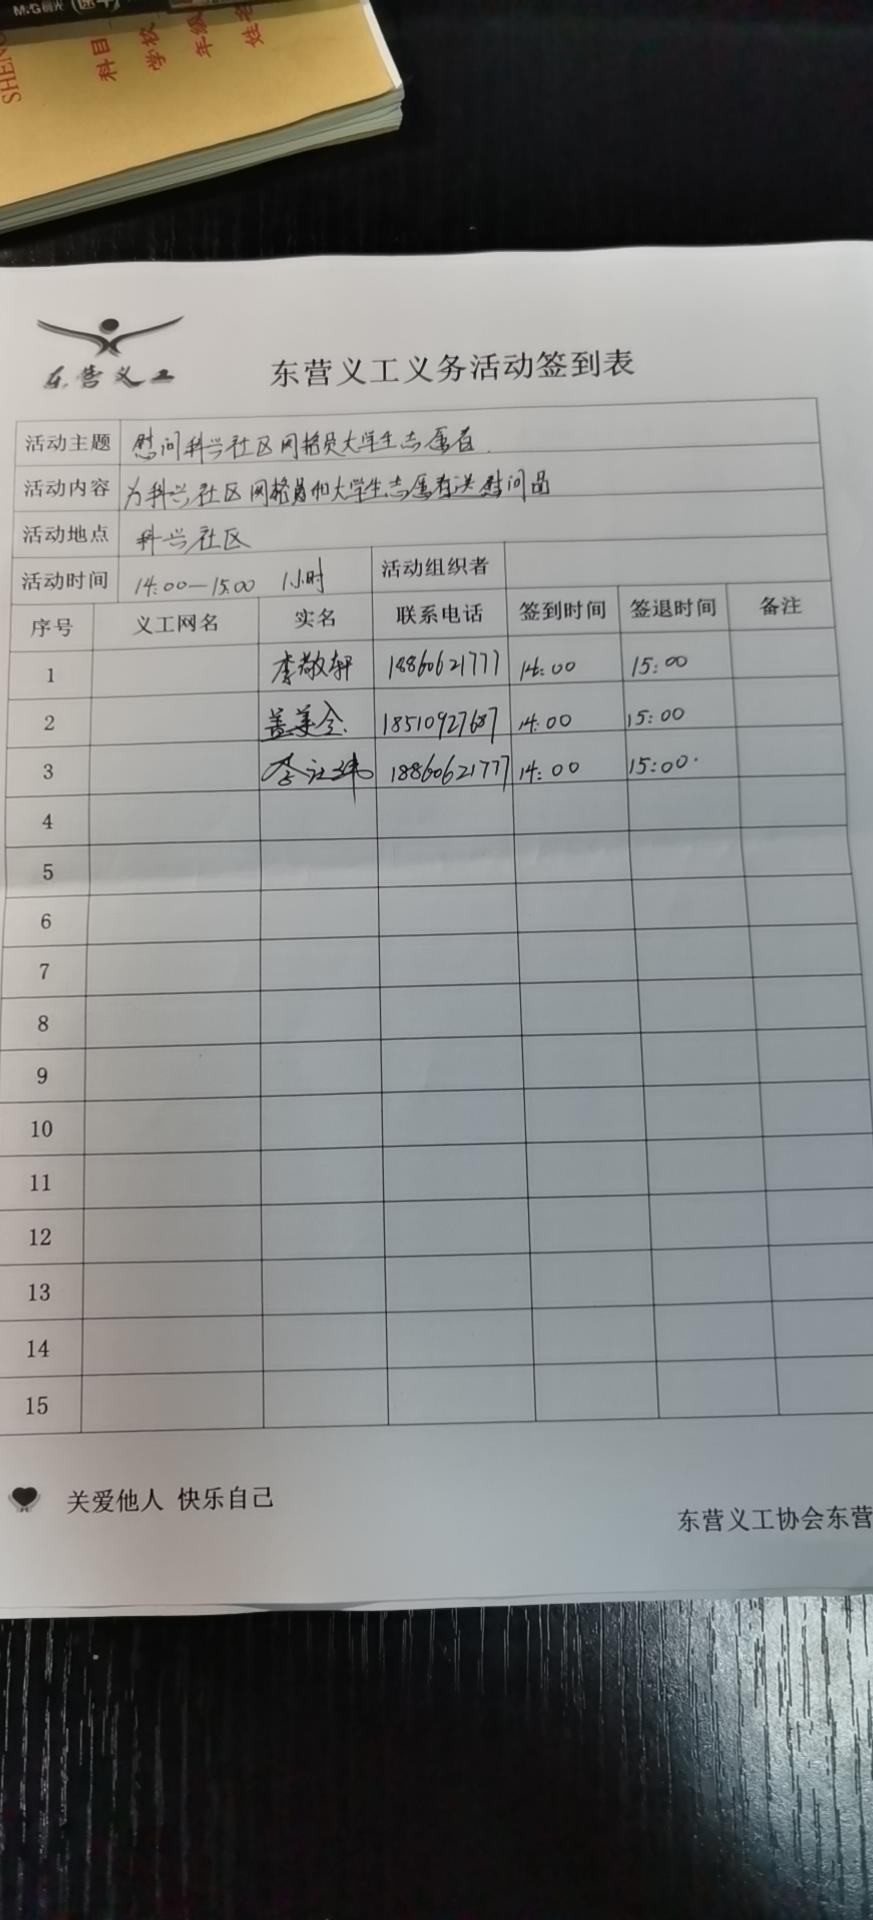 M&G晨光
SHENG
科目
学校
年级
姓名
东营义工
东营义工义务活动签到表
活动主题 慰问科兴社区网格员大学生志愿者
活动内容 为科兴社区网格员和大学生志愿者送慰问品
活动地点 科兴社区
活动时间 14:00—15:00 1小时 活动组织者
序号 义工网名 实名 联系电话 签到时间 签退时间 备注
1 李敬轩 18860621777 14:00 15:00
2 盖美 18510927687 14:00 15:00
3 李 18860621777 14:00 15:00
4
5
6
7
8
9
10
11
12
13
14
15
关爱他人 快乐自己
东营义工协会东营